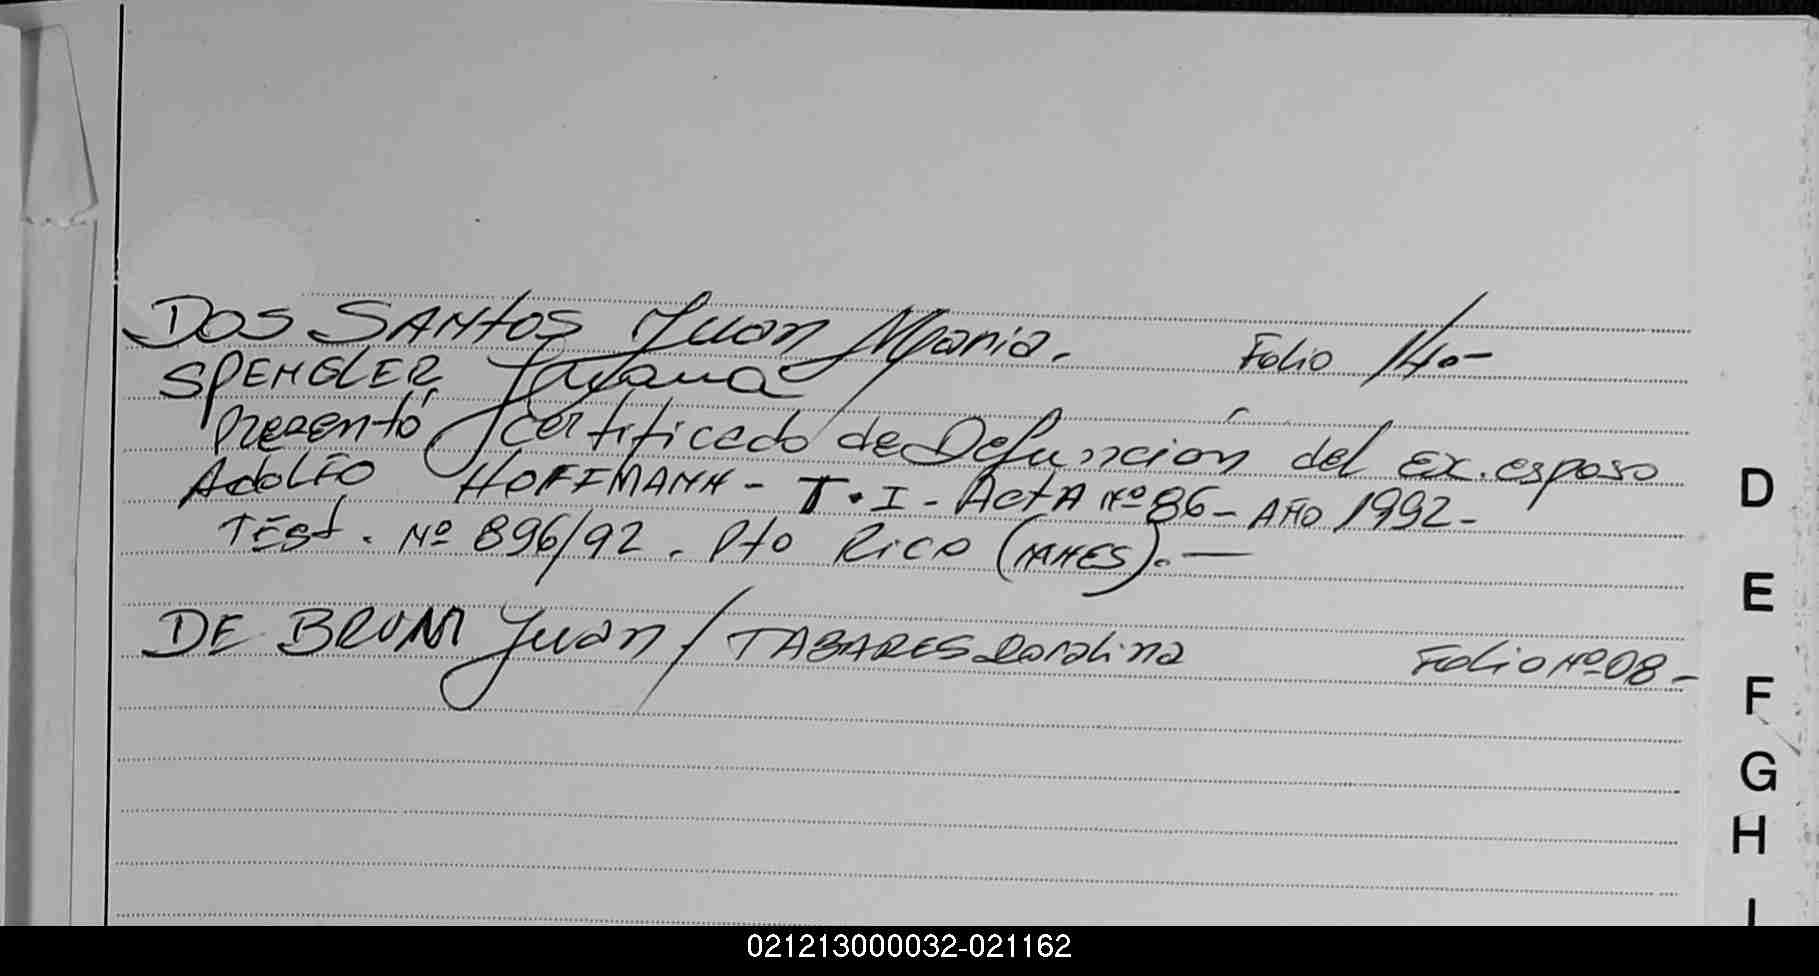 DOS SANTOS Juan Maria. Folio 140-
SPENGLER
Presentó Certificado de Defuncion del ex. esposo
Adolfo HOFFMANN - T.I - Acta Nº 86 - Año 1992 -
Test. Nº 896/92. Pto Rico (MNES). —
DE BRUM Juan / TABARES Doralina Folio Nº 08 -
D
E
F
G
H
I
021213000032-021162